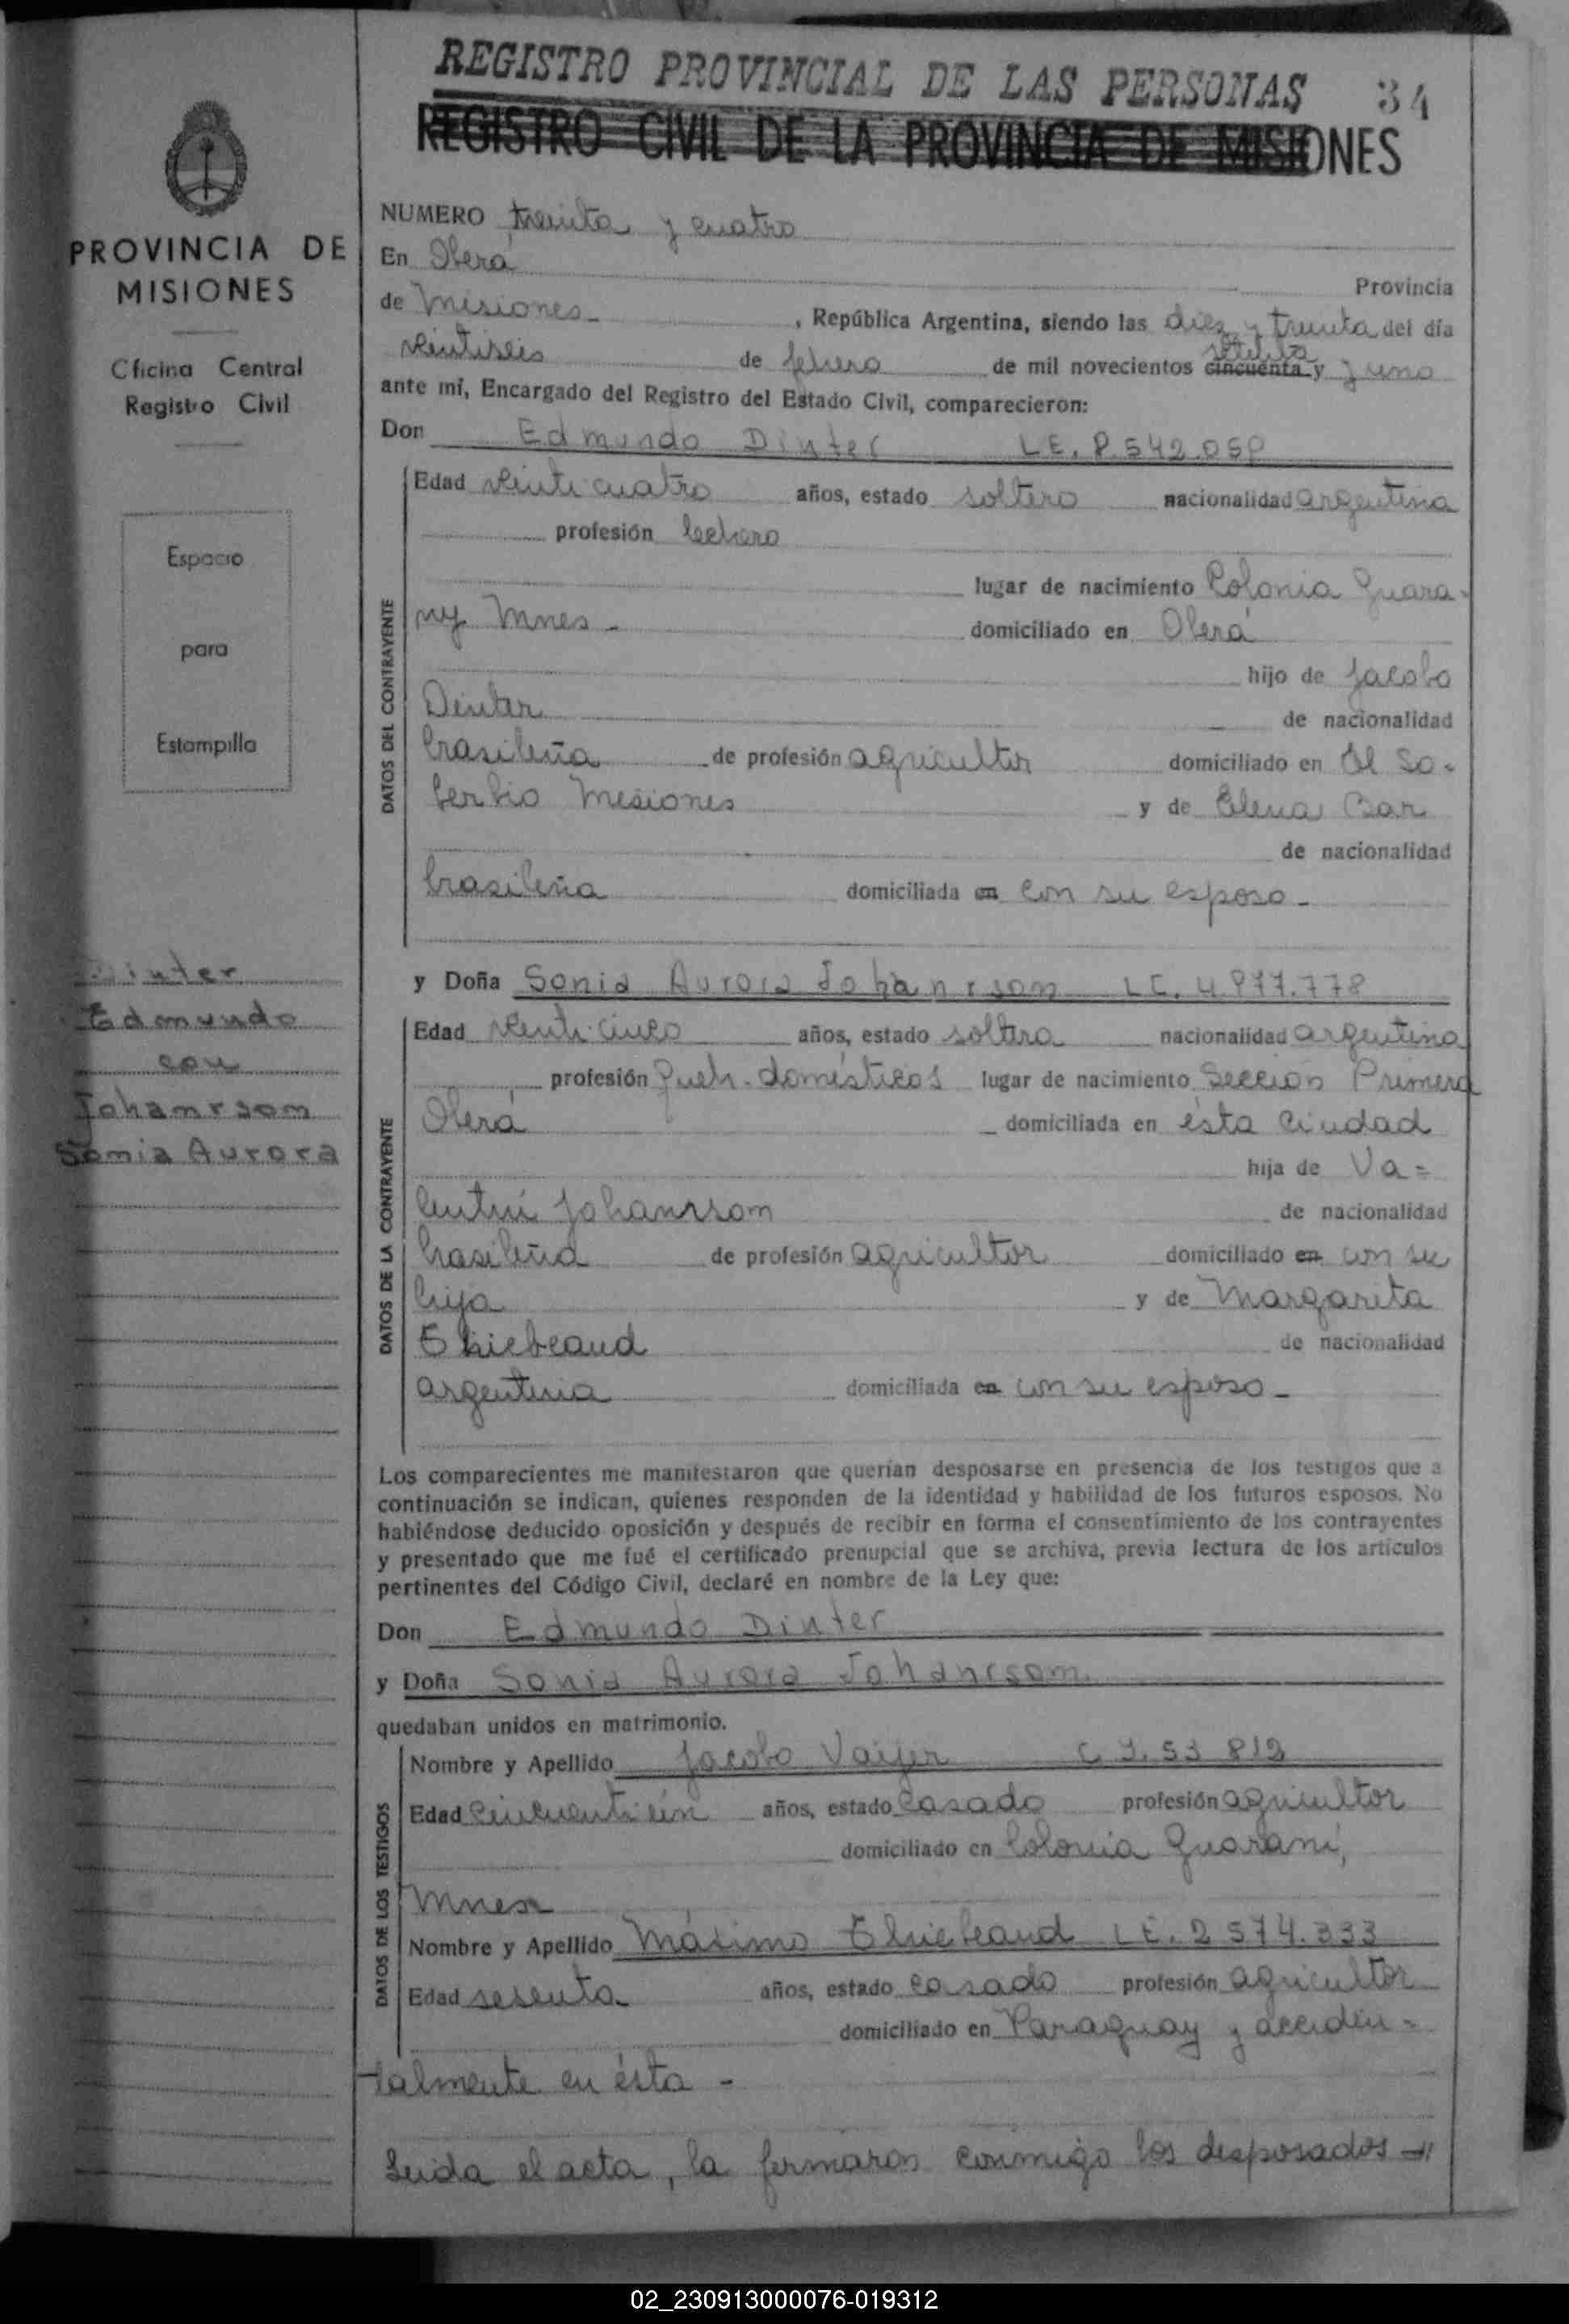 REGISTRO PROVINCIAL DE LAS PERSONAS 34
REGISTRO CIVIL DE LA PROVINCIA DE MISIONES
PROVINCIA DE
MISIONES
Oficina Central
Registro Civil
Espacio
para
Estampilla
Dinter
Edmundo
con
Johanrson
Sonia Aurora
NUMERO treinta y cuatro
En Oberá
Provincia
de Misiones , República Argentina, siendo las diez y treinta del día
veintiseis de febrero de mil novecientos cincuenta y setenta y uno
ante mí, Encargado del Registro del Estado Civil, comparecieron:
Don Edmundo Dinter LE. 8.542.058
Edad veinticuatro años, estado soltero nacionalidad argentina
profesión lechero
lugar de nacimiento Colonia Guara-
ny Mnes - domiciliado en Oberá
hijo de Jacobo
Dinter de nacionalidad
brasileña de profesión agricultor domiciliado en El So-
berbio Misiones y de Elena Bar
de nacionalidad
brasileña domiciliada en con su esposo -
y Doña Sonia Aurora Johanrson LC. 4.877.778
Edad veinticinco años, estado soltera nacionalidad argentina
profesión Queh. domésticos lugar de nacimiento Sección Primera
Oberá domiciliada en ésta ciudad
hija de Va=
lentín Johanrsom de nacionalidad
brasileña de profesión agricultor domiciliado en con su
hija y de Margarita
Thiebeaud de nacionalidad
argentina domiciliada en con su esposo -
Los comparecientes me manifestaron que querían desposarse en presencia de los testigos que a
continuación se indican, quienes responden de la identidad y habilidad de los futuros esposos. No
habiéndose deducido oposición y después de recibir en forma el consentimiento de los contrayentes
y presentado que me fué el certificado prenupcial que se archiva, previa lectura de los artículos
pertinentes del Código Civil, declaré en nombre de la Ley que:
Don Edmundo Dinter
y Doña Sonia Aurora Johanrsom
quedaban unidos en matrimonio.
Nombre y Apellido Jacobo Vaijer C.I. 53 812
Edad cincuentiún años, estado casado profesión agricultor
domiciliado en Colonia Guaraní,
Mnes
Nombre y Apellido Máximo Thiebeaud LE. 2 574.333
Edad sesenta años, estado casado profesión agricultor
domiciliado en Paraguay y acciden=
talmente en ésta -
Leida el acta, la firmaron conmigo los desposados
DATOS DEL CONTRAYENTE
DATOS DE LA CONTRAYENTE
DATOS DE LOS TESTIGOS
02_230913000076-019312